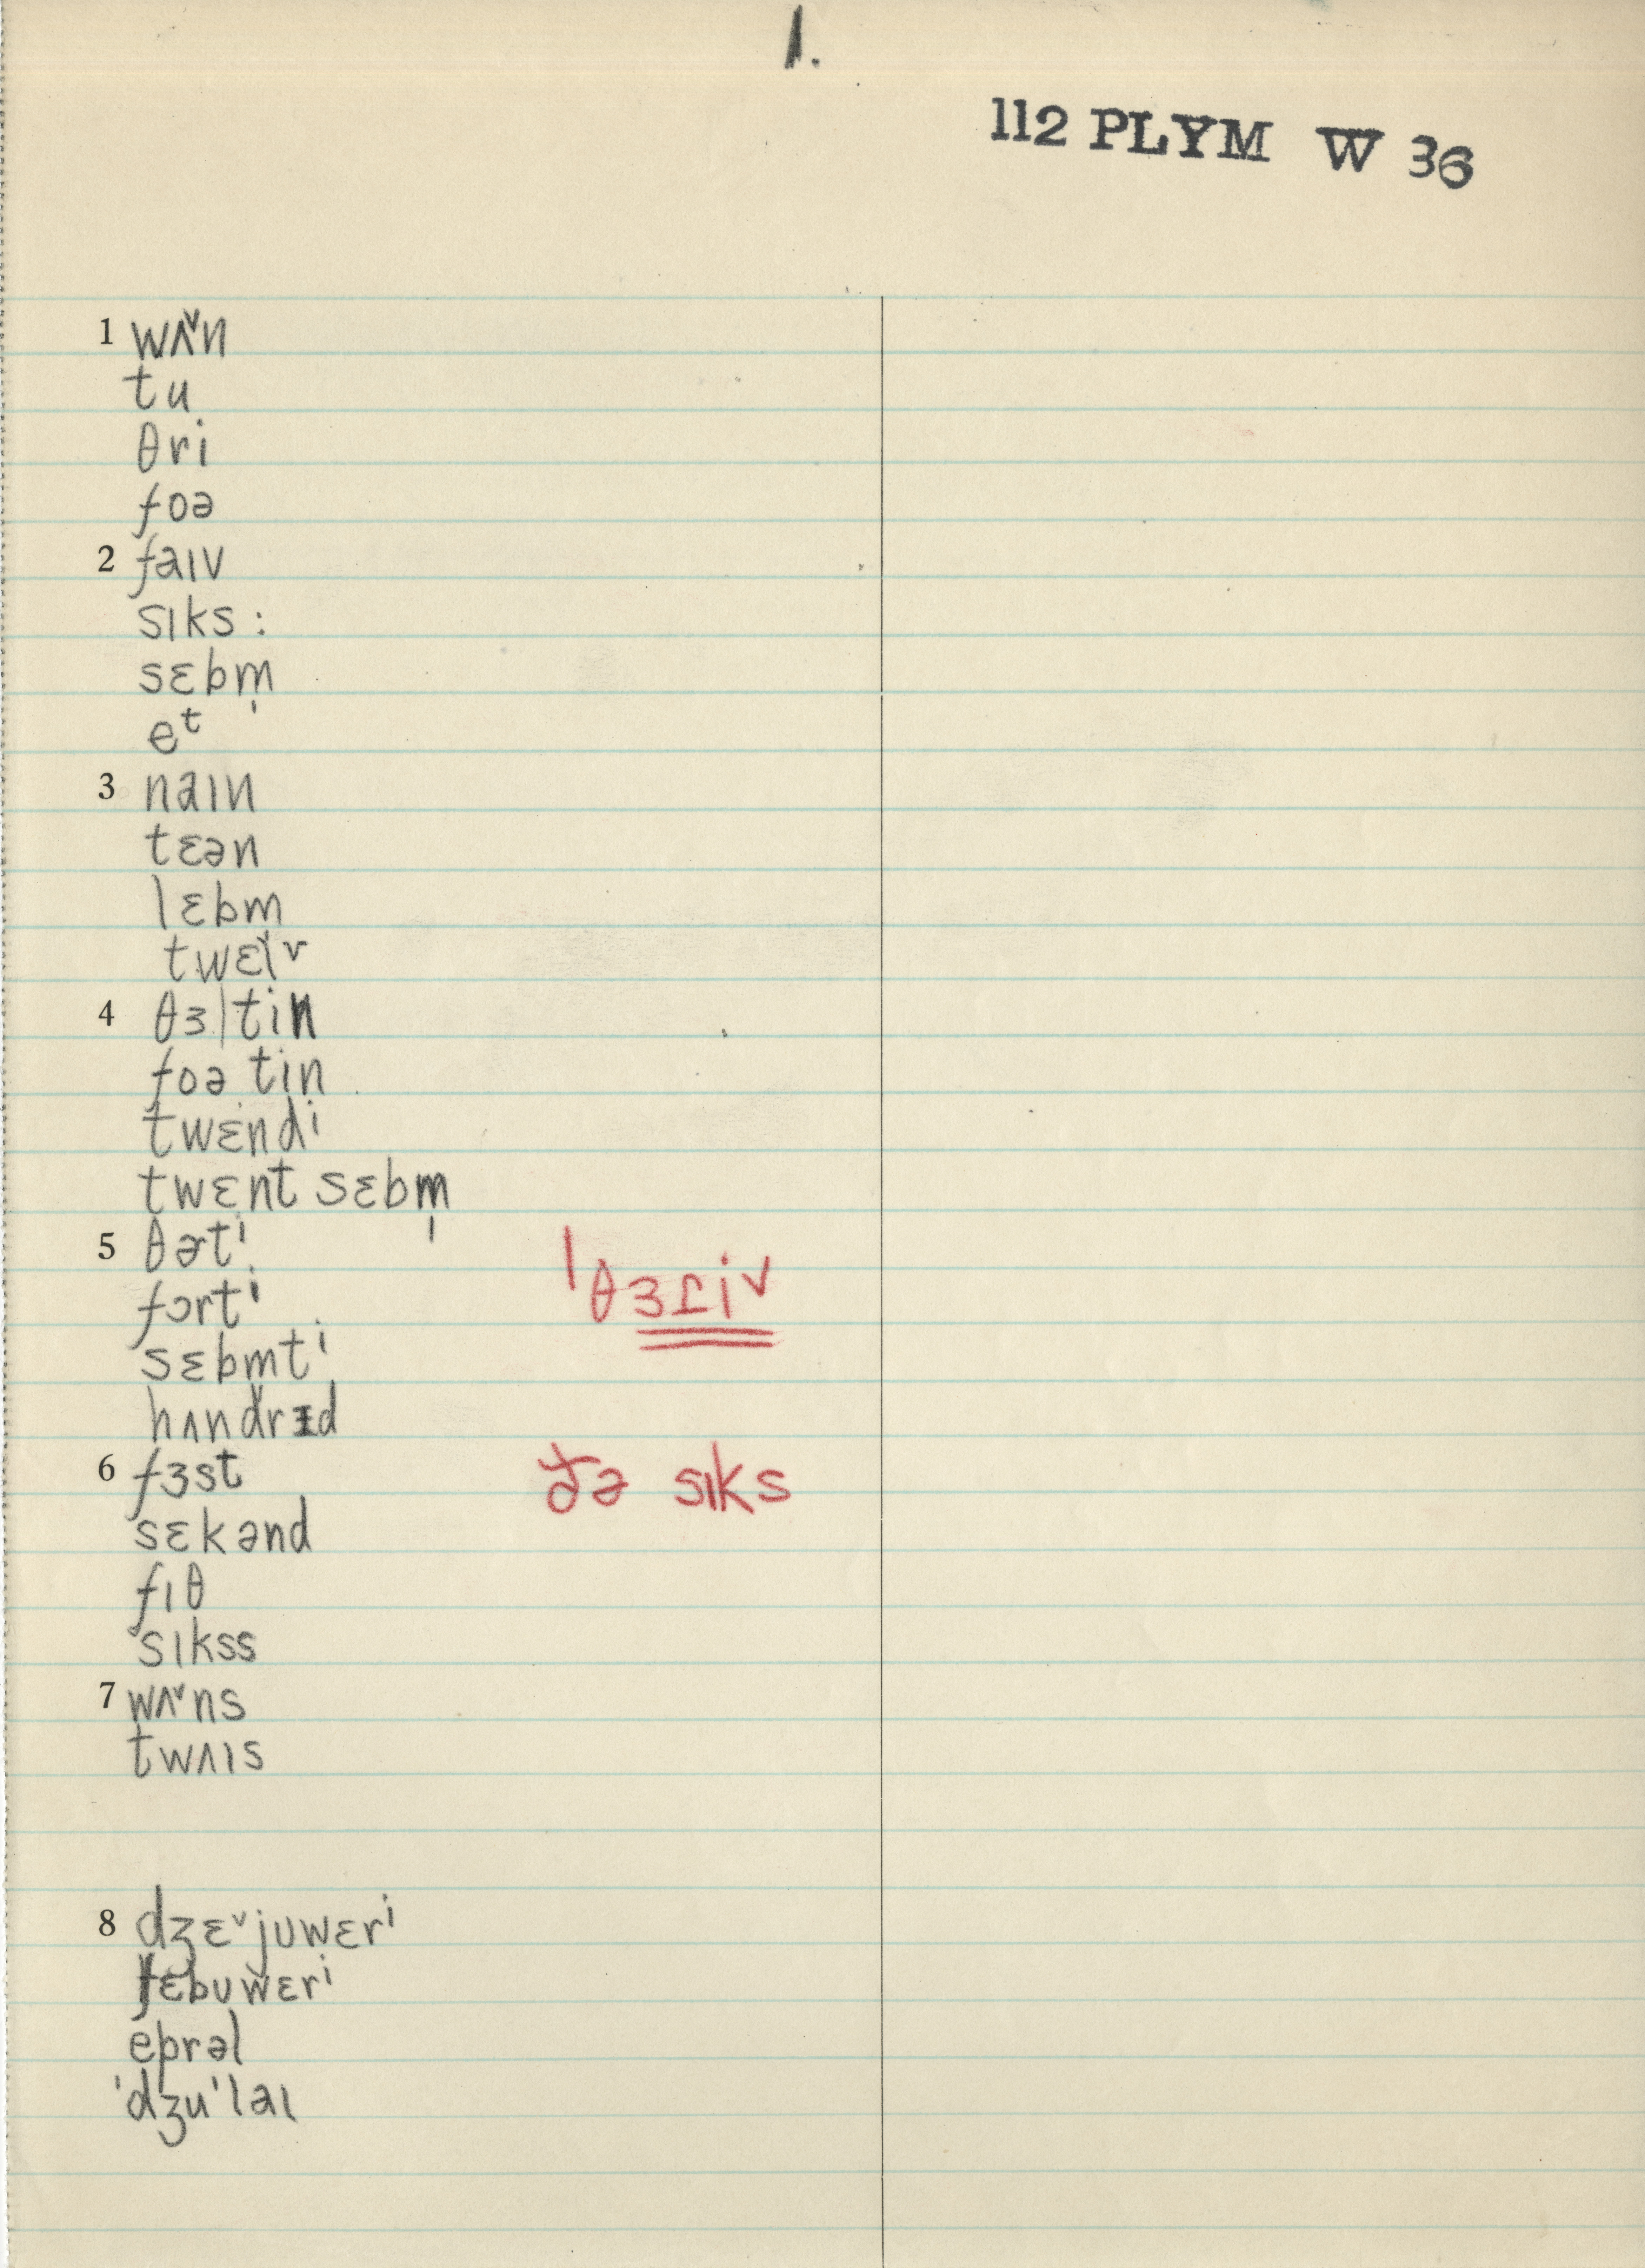 1.
112 PLYM W 36
1 wʌ˅n
tu
θri
foə
2 faɪv
sɪks :
sɛbm̩
eᵗ
3 naɪn
tɛən
lɛbm
twɛlᵛ
4 θɜ|tin
foə tin
twɛndⁱ
twɛnt sɛbm̩
5 θɚtⁱ ˈθɜɾi˅
fɔrtⁱ
sɛbmtⁱ
hʌndrɪd
6 fɜst ðə sɪks
sɛkənd
fɪθ
sɪkss
7 wʌ˅ns
twʌɪs
8 dʒɛ˅juwɛrⁱ
fɛbuwɛrⁱ
eprəl
ˈdʒuˈlaɪ